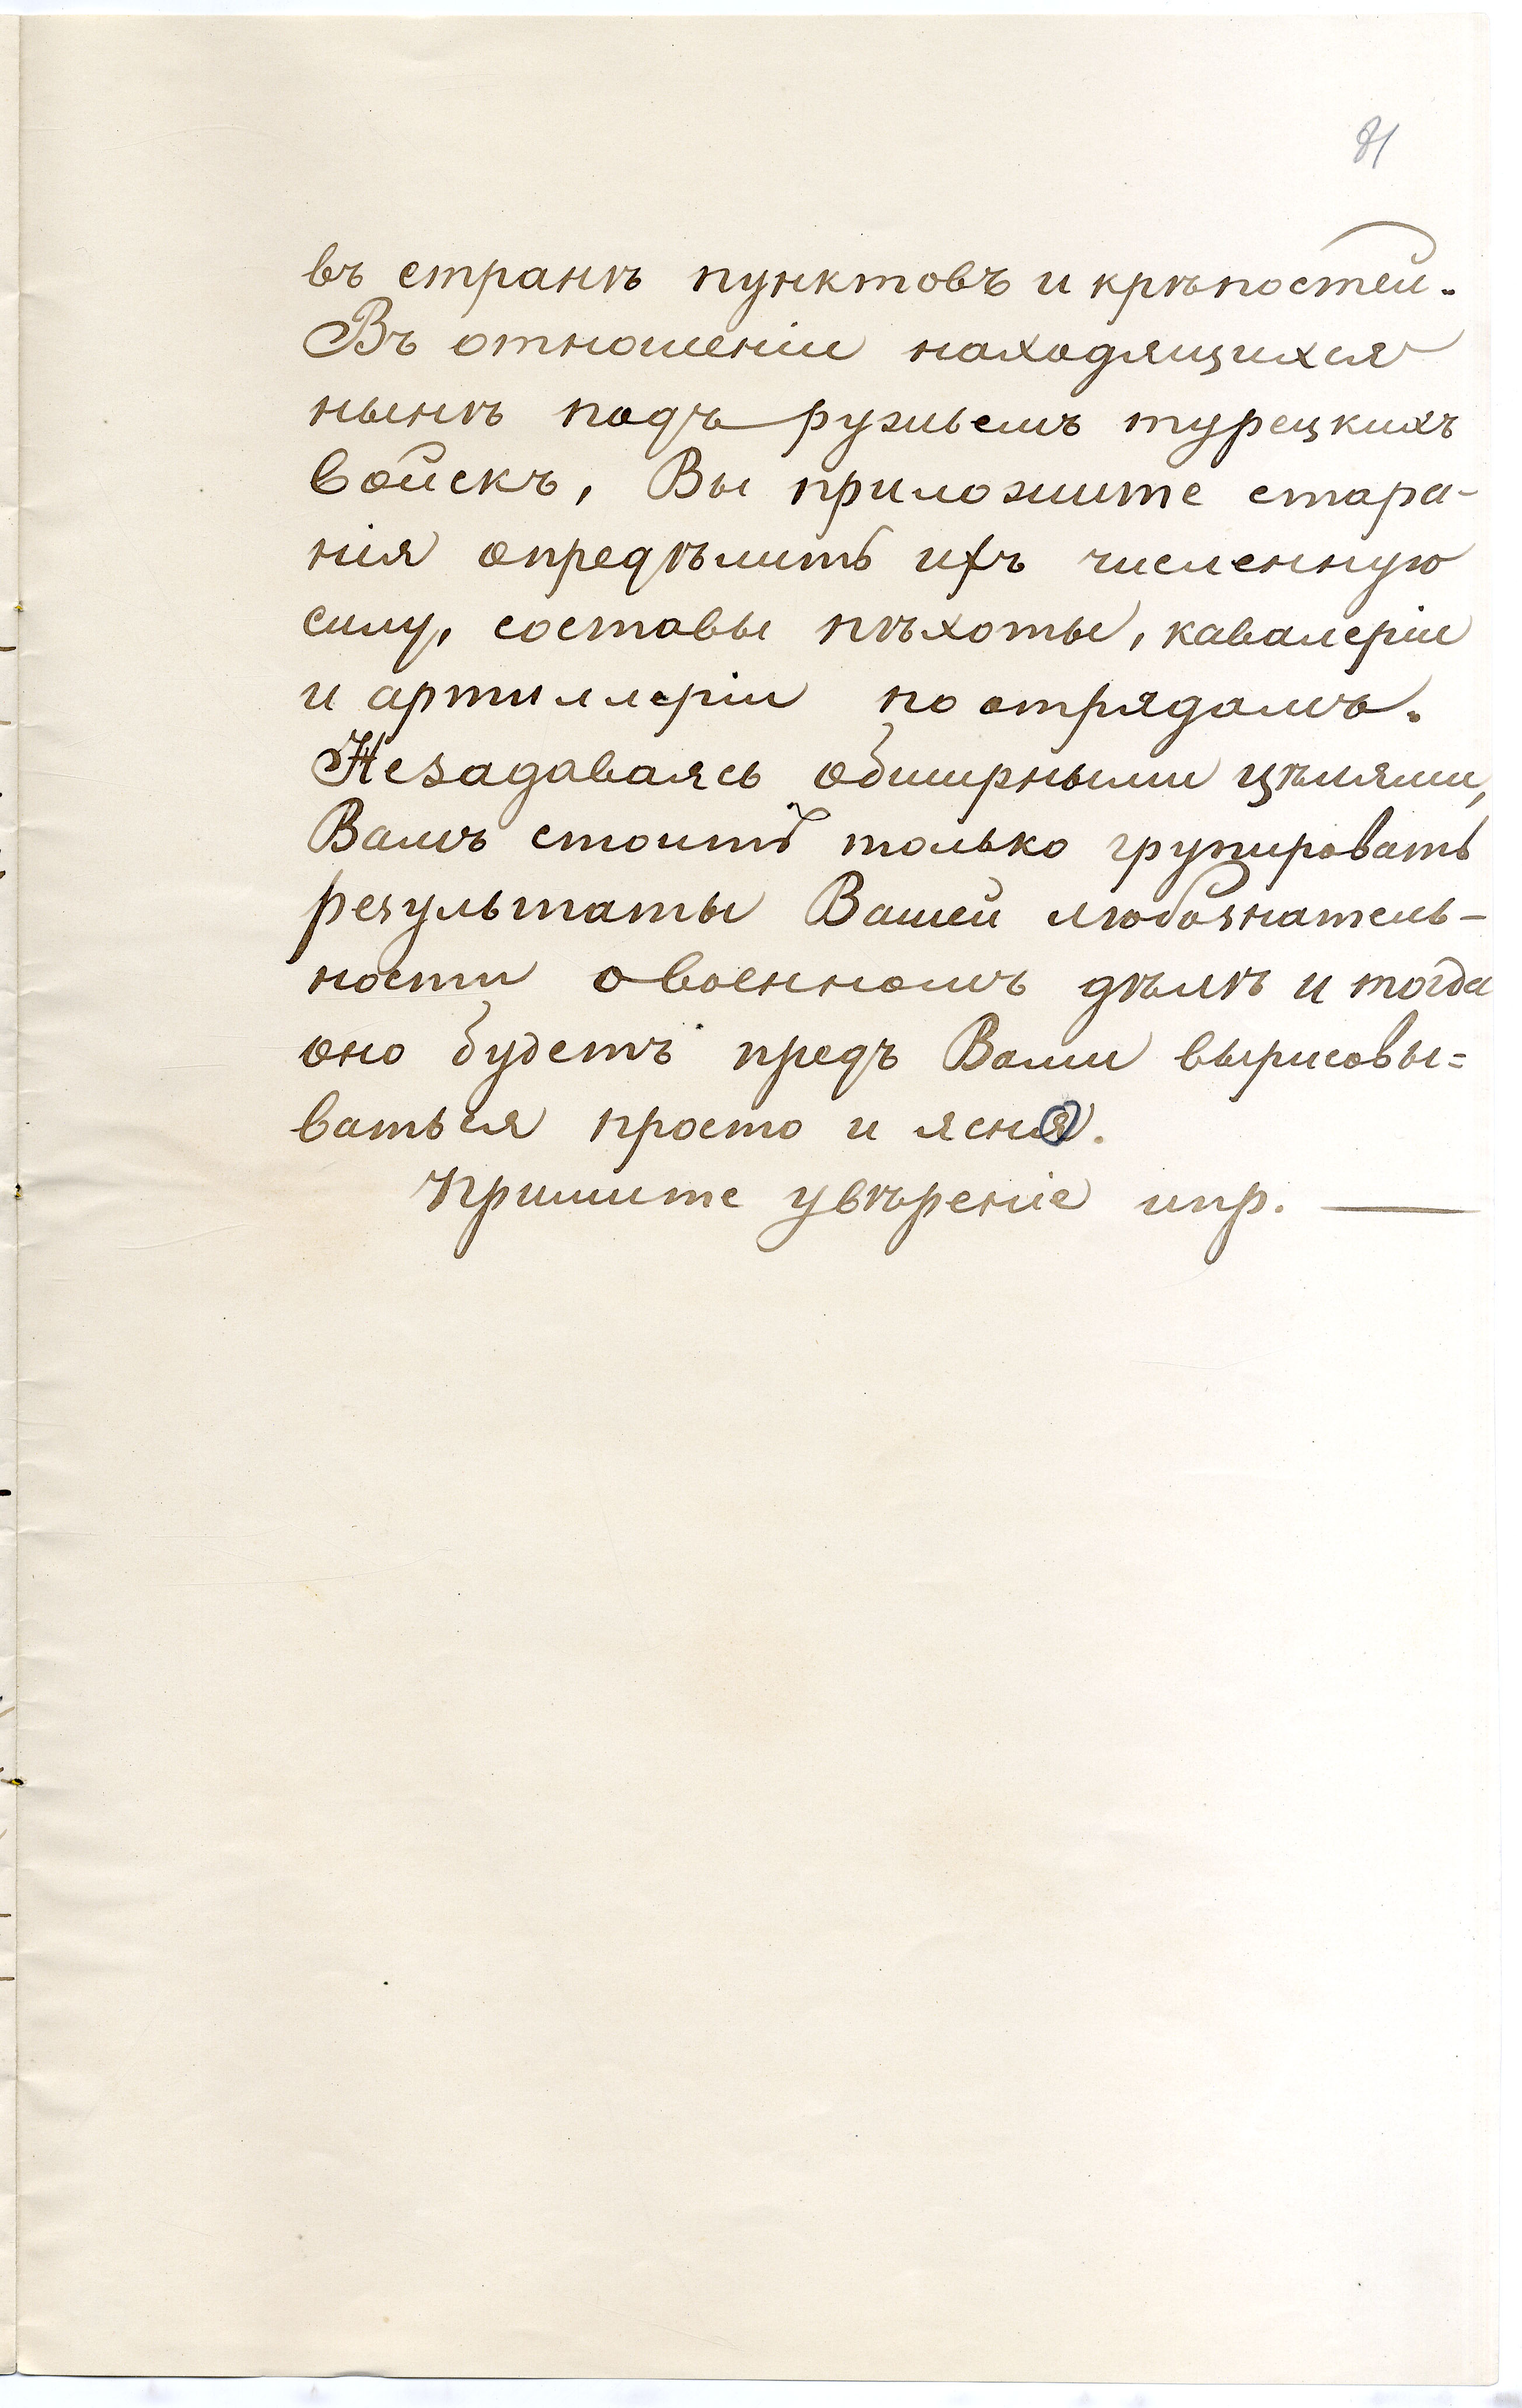 81
въ странѣ пунктовъ и крѣпостей.
Въ отношеніи находящихся
нынѣ подъ ружьемъ турецкихъ
войскъ, Вы приложите стара-
нія опредѣлить ихъ численную
силу, составы пѣхоты, кавалеріи
и артиллеріи по отрядамъ.
Незадаваясь обширными цѣлями,
Вамъ стоитъ только групировать
результаты Вашей любознатель-
ности о военномъ дѣлѣ и тогда
оно будетъ предъ Вами вырисовы=
ваться просто и ясно.
Примите увѣреніе ипр. —